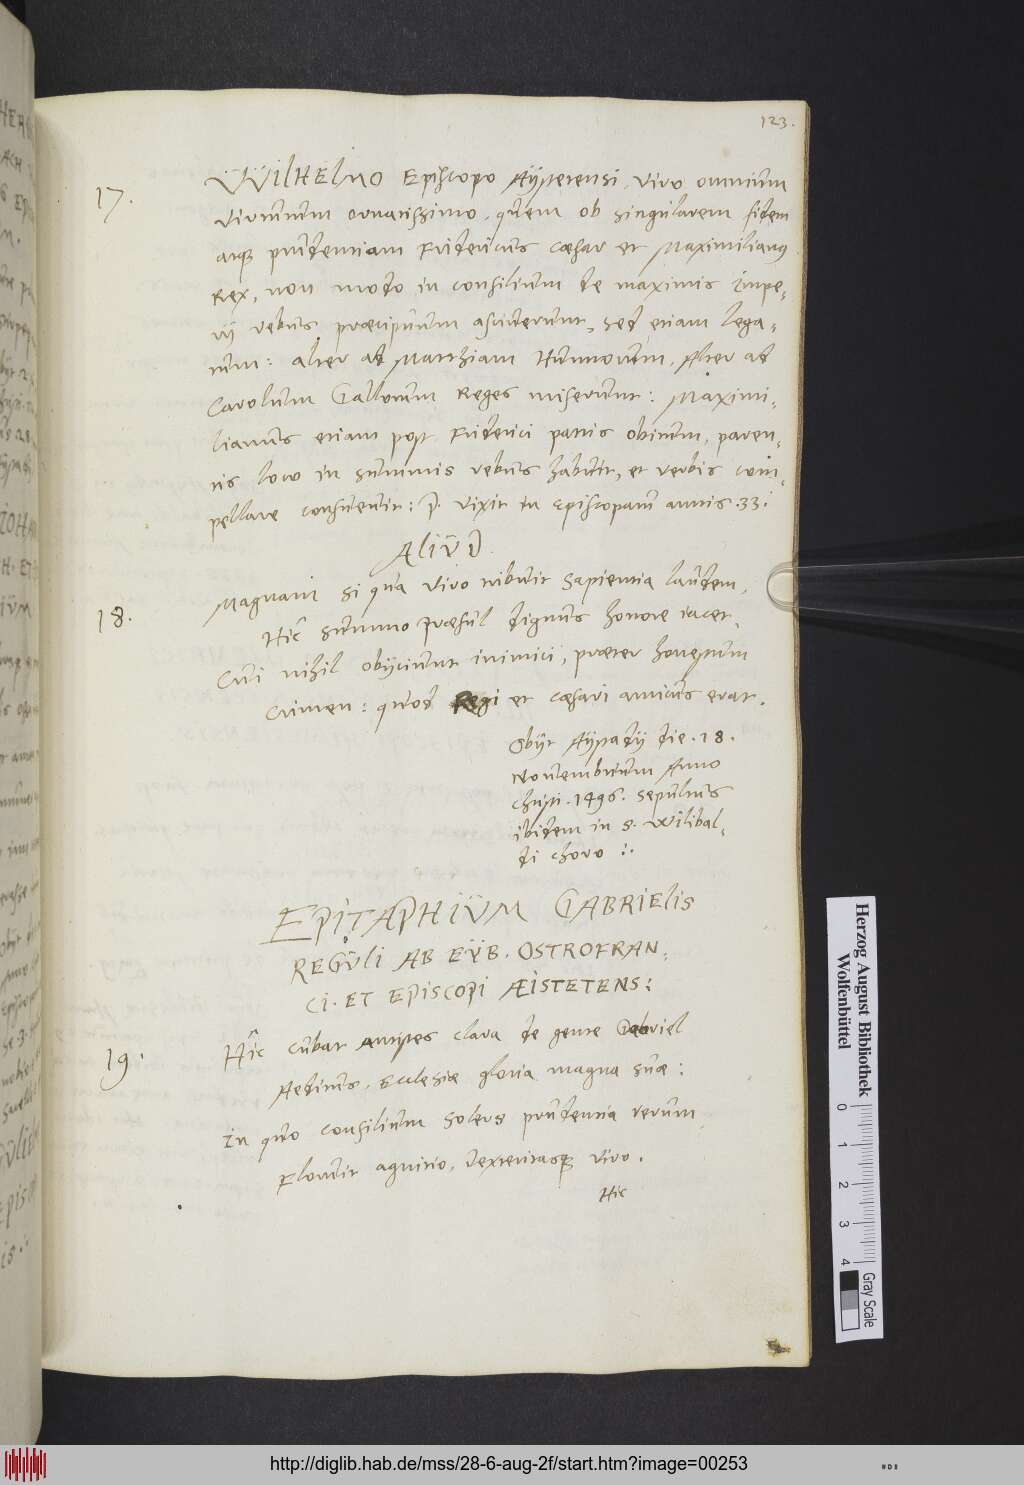 123.
17.
VVILHELMO Episcopo Aystetensi, viro omnium
virtutum ornatissimo, quem ob singularem fidem
atque prudentiam Fridericus Cæsar et Maximilianus
Rex, non modo in consilium de maximis Impe-
rij rebus præcipuum asciuerunt, sed etiam lega-
tum: alter ad Matthiam Hunnorum, Alter ad
Carolum Gallorum Reges miserunt: Maximi-
lianus etiam post Friderici patris obitum, paren-
tis loco in summis rebus habuit, et verbis com-
pellare consueuit: P. vixit in Episcopatu annis .33.
ALIVD
18.
Magnam si qua viro tribuit sapientia laudem,
Hic summo Præsul dignus honore iacet.
Cui nihil obijciunt inimici, præter honestum
Crimen: quod Regi et Cæsari amicus erat.
Obijt Aystadij die .18.
Nouembrium Anno
Christi .1496. Sepultus
ibidem in S. Wilibal-
di choro
EPITAPHIVM GABRIELIS
REGVLI AB EYB. OSTROFRAN-
CI. ET EPISCOPI ÆISTETENS:
19.
Hic cubat Antistes clara de gente Gabriel
Aedituus, Ecclesiæ gloria magna suæ:
In quo consilium solers prudentia rerum
Floruit agnitio, dexteritasque viro.
Hic
Herzog August Bibliothek
Wolfenbüttel
0 1 2 3 4
Gray Scale
http://diglib.hab.de/mss/28-6-aug-2f/start.htm?image=00253